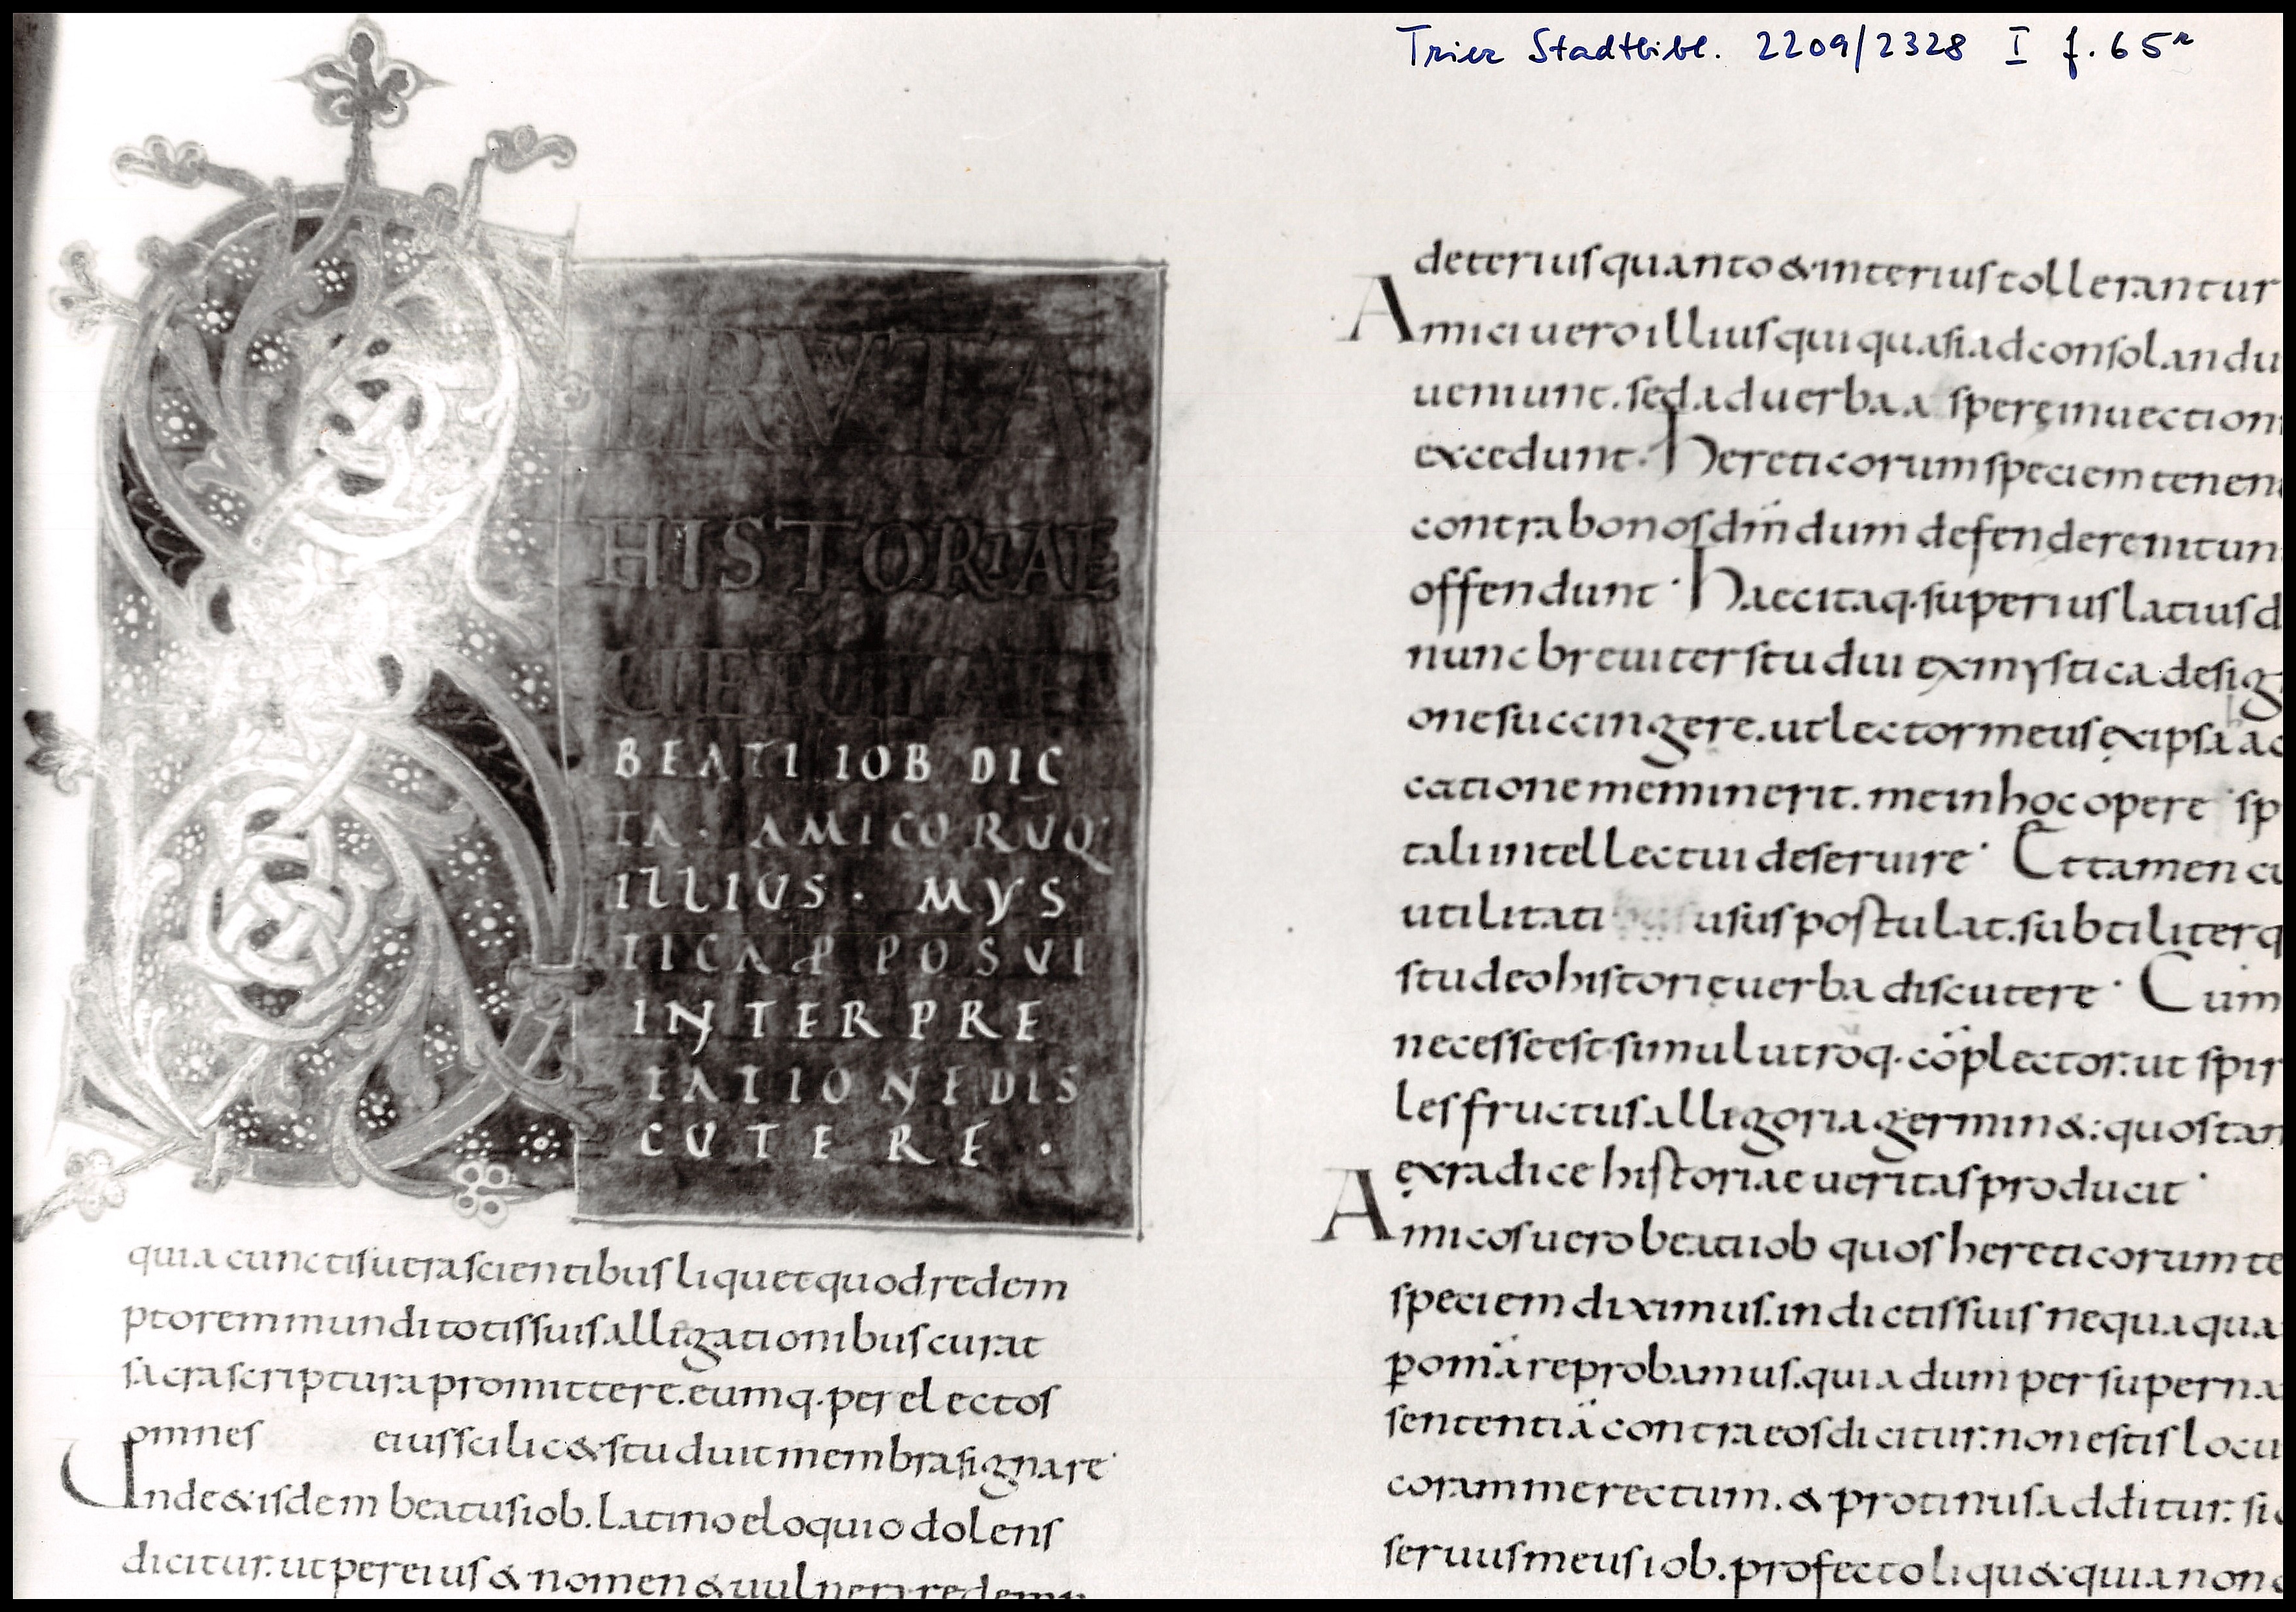 Trier Stadtbibl. 2209/2328 I f. 65r
ERVTA
HISTORIAE
BEATI IOB DIC
TA · AMICORUQ·
ILLIUS · MYS
TICA P̄POSUI
INTERPRE
TATIONE DIS
CUTERE ·
quia cunctis ut rascientibus liquet quod redem
ptorem mundi totis suis alligationibus curat
sacra scriptura promittere. eumq· per electos
omnes eius scilic& studuit membra signare·
Unde & isdem beatus iob. latino eloquio dolens
dicitur. ut per eius & nomen & uulnera redemp
deterius quanto & interius tollerantur
Amici uero illius qui quasi ad consolandu
ueniunt. sed ad uerba asperę inuection
excedunt. hereticorum speciem tenen
contra bonos dm̄ dum defendere nitun
offendunt· haec itaq· superius latius d
nunc breuiter studui ex mystica desig
one succingere. ut lector meus ex ipsa
catione meminerit. me in hoc opere sp
tali intellectui deseruire· Et tamen cu
utilitati usus postulat. subtiliter q
studeo historię uerba discutere· Cum
necesse est simul utroq· cōplector. ut spir
les fructus alligoria germin&: quos tam
ex radice historiae ueritas producit·
Amicos uero beati iob quos hereticorum te
speciem diximus. in dictis suis nequaqua
p omīa reprobamus. quia dum per superna
sententiā contra eos dicitur: non estis locu
coram me rectum. & protinus additur: sic
seruus meus iob. profecto liqu& quia non